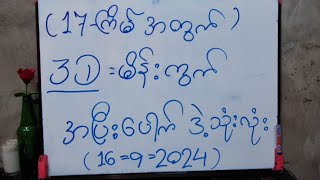 (17-ကြိမ် အတွက်)
3D = မိန်းကွက်
အပြီးပေါက် ဒဲ့သုံးလုံး
(16=9=2024)